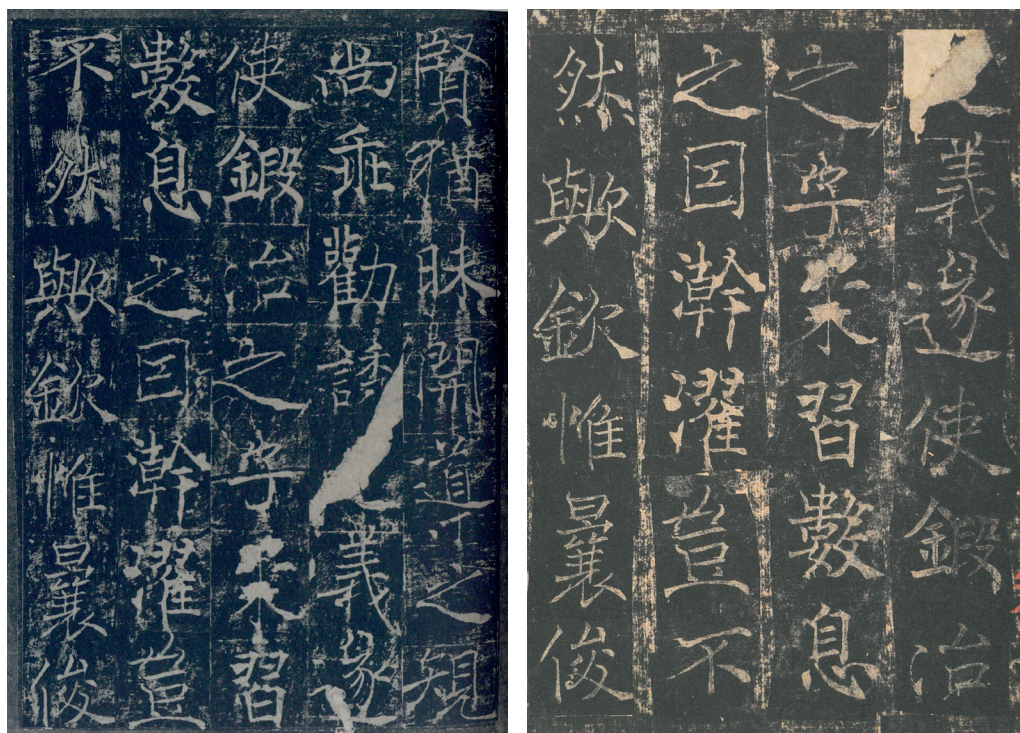 賢猶昧開導之規
尚乖勸誘之義遂
使鍛冶之學未習
數息之因澣濯豈
不然歟欽惟曩俊
之義遂使鍛冶
之學未習數息
之因澣濯豈不
然歟欽惟曩俊